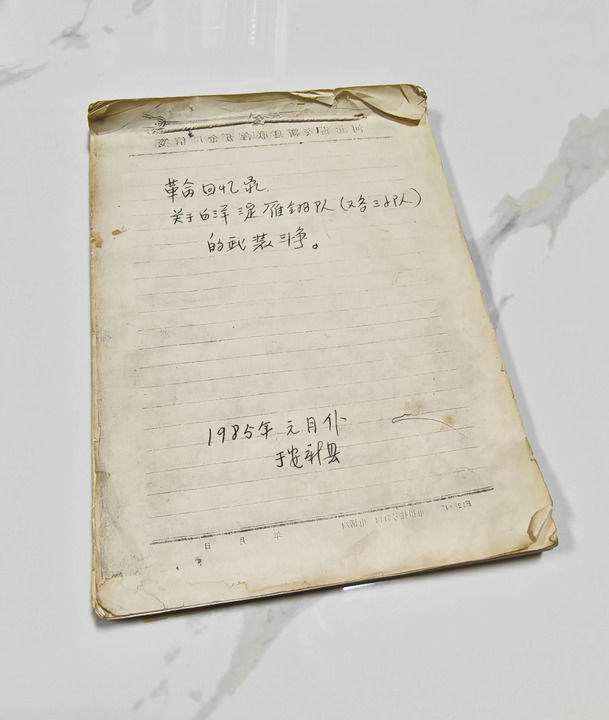 革命回忆录.
关于白洋淀雁翎队(又名三小队)
的武装斗争。
1985年元月
于安新县
日 月 年